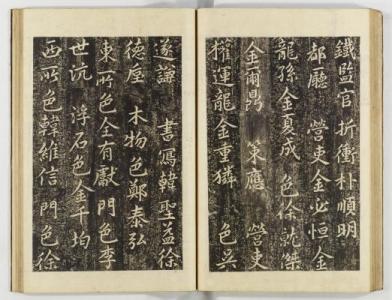 鐵監官 折衝朴順明
都廳 營吏金必恒 金
龍孫 金夏成 色徐就傑
金爾昌 策應 營吏
權運龍 金重獜 色吳
遂謙 書寫韓聖益 徐
德屋 木物色鄭泰弘
東所色全有獻 門色李
世沆 浮石色金千均
西所色韓維信 門色徐